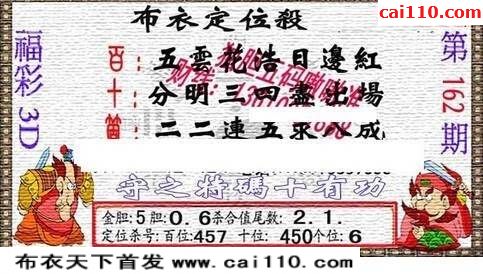 cai110.com
布衣定位殺
福彩3D
第162期
百：五雲花浩日邊紅
十：分明三四盡出場
個：二二連五來八成
守之将碼十有功
金胆:5 胆:0.6杀合值尾数: 2.1.
定位杀号:百位:457 十位: 450个位:6
布衣天下首发 www.cai110.com